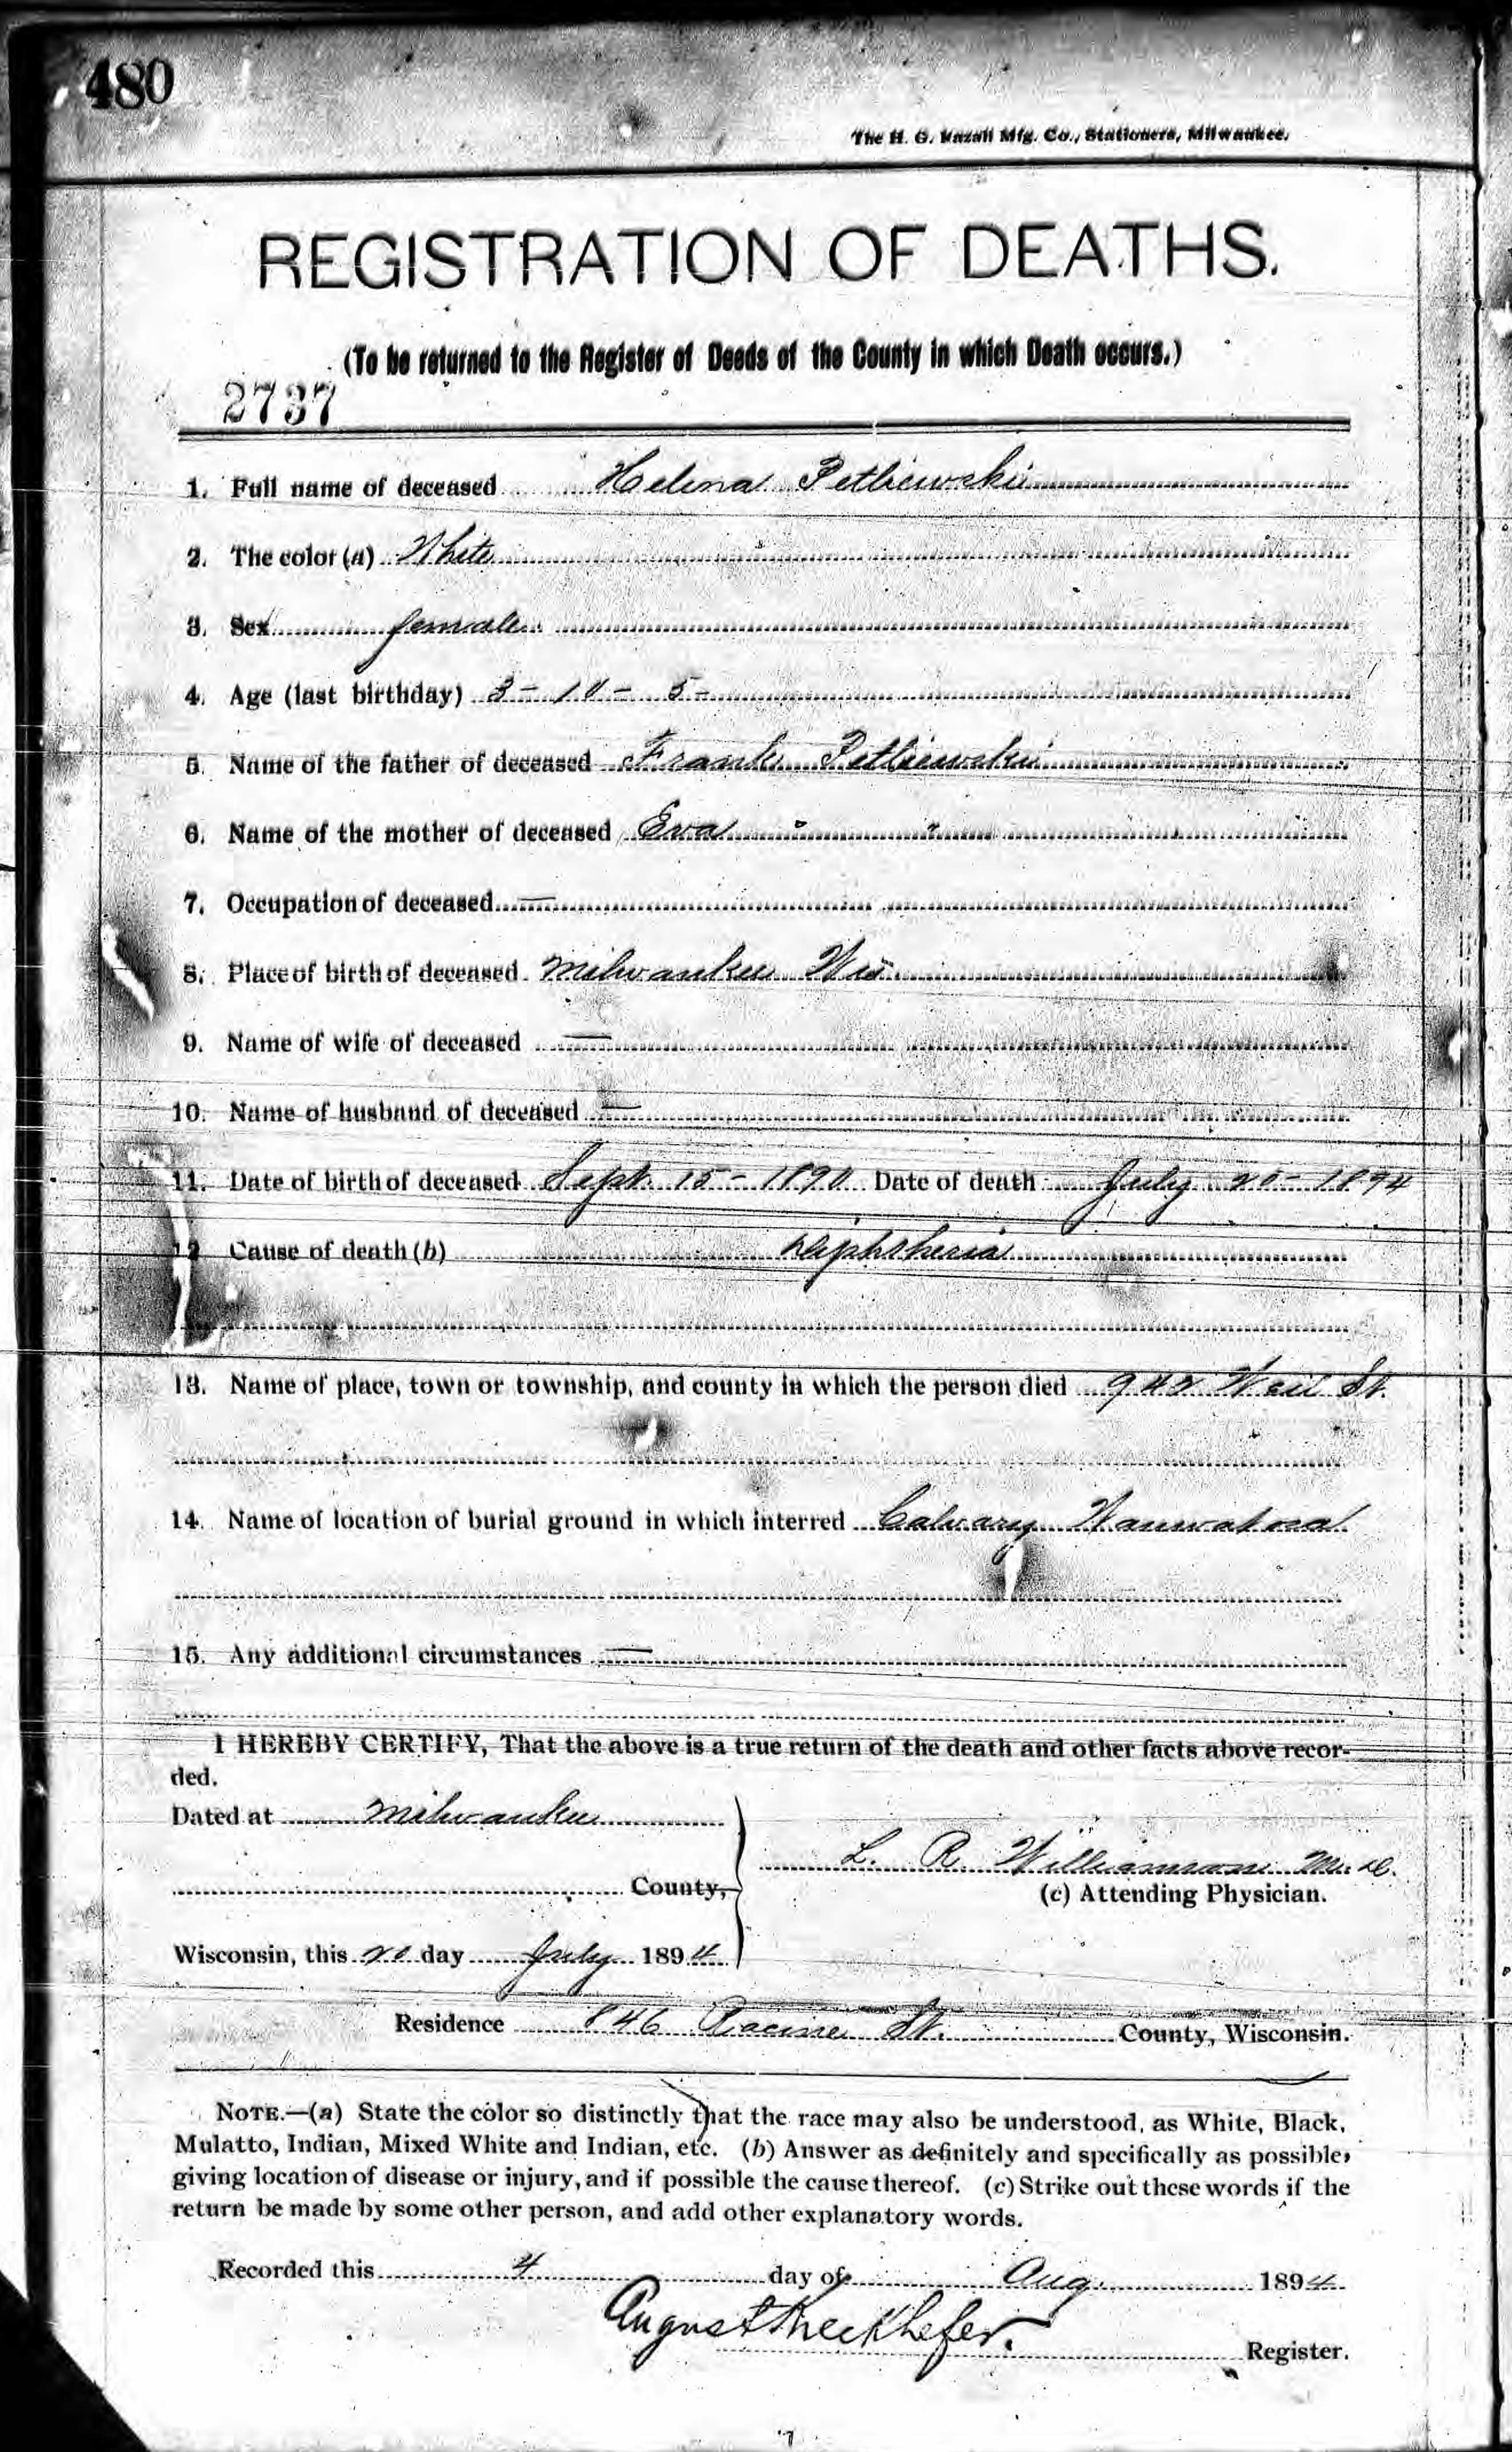 480
The H. G. Razall Mfg. Co., Stationers, Milwaukee.
REGISTRATION OF DEATHS.
(To be returned to the Register of Deeds of the County in which Death occurs.)
2737
1. Full name of deceased Helena
2. The color (a) White
3. Sex female
4. Age (last birthday) 3 - 10 - 5 -
5. Name of the father of deceased Frank
6. Name of the mother of deceased Eva " "
7. Occupation of deceased —
8. Place of birth of deceased Milwaukee Wis.
9. Name of wife of deceased —
10. Name of husband of deceased —
11. Date of birth of deceased Sept. 15 - 1890 Date of death July 20 - 1894
12 Cause of death (b) Diphtheria
13. Name of place, town or township, and county in which the person died 942 Weil St.
14. Name of location of burial ground in which interred Calvary Wauwatosa
15. Any additional circumstances —
I HEREBY CERTIFY, That the above is a true return of the death and other facts above recor-
ded.
Dated at Milwaukee
L. R. Williamson M. D.
County,
(c) Attending Physician.
Wisconsin, this 20 day July 1894
Residence 846 Racine St. County, Wisconsin.
NOTE.—(a) State the color so distinctly that the race may also be understood, as White, Black,
Mulatto, Indian, Mixed White and Indian, etc. (b) Answer as definitely and specifically as possible,
giving location of disease or injury, and if possible the cause thereof. (c) Strike out these words if the
return be made by some other person, and add other explanatory words.
Recorded this 4 day of Aug. 1894
August Kieckhefer.
Register.